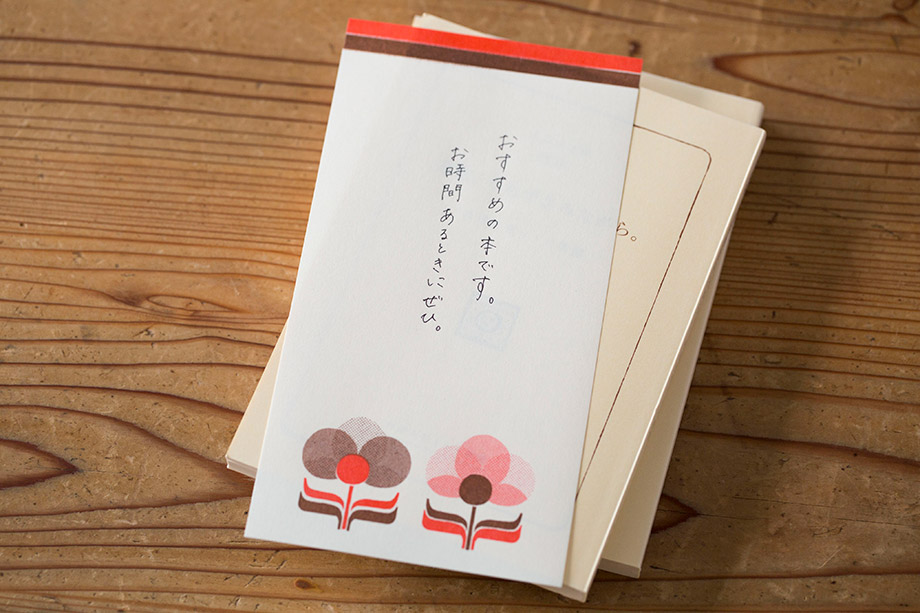 おすすめの本です。
お時間あるときにぜひ。
ら。